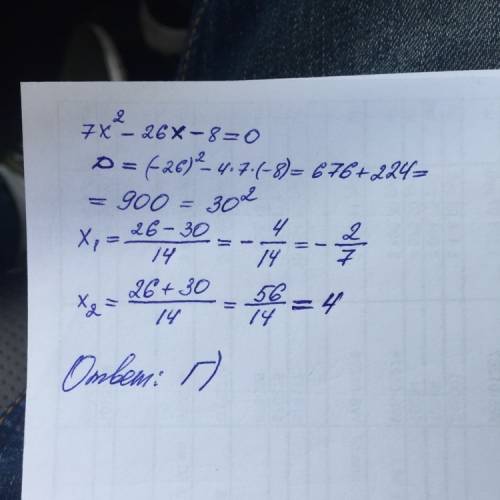 7x² - 26x - 8 = 0
D = (-26)² - 4·7·(-8) = 676 + 224 =
= 900 = 30²
x₁ = (26 - 30)/14 = - 4/14 = - 2/7
x₂ = (26 + 30)/14 = 56/14 = 4
Ответ: Г)